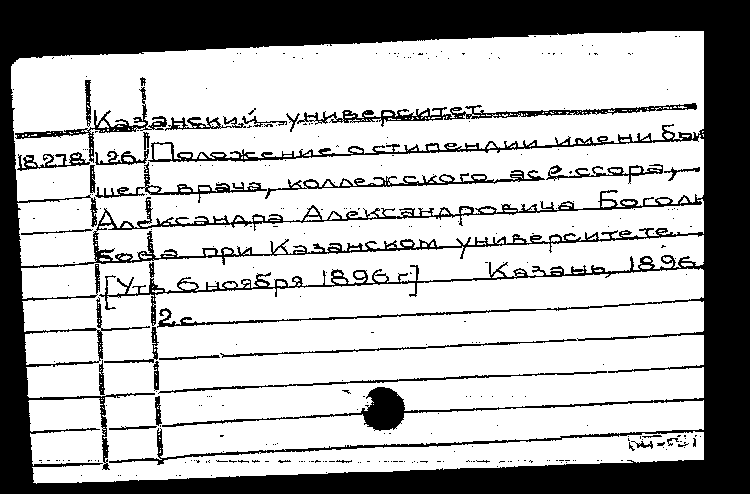 Казанский университет.
18.278.1.26. Положение о стипендии имени быв
шего врача, коллежского асессора,
Александра Александровича Боголю
бова при Казанском университете.
[Утв. 6 ноября 1896 г.] Казань, 1896.
2 с.